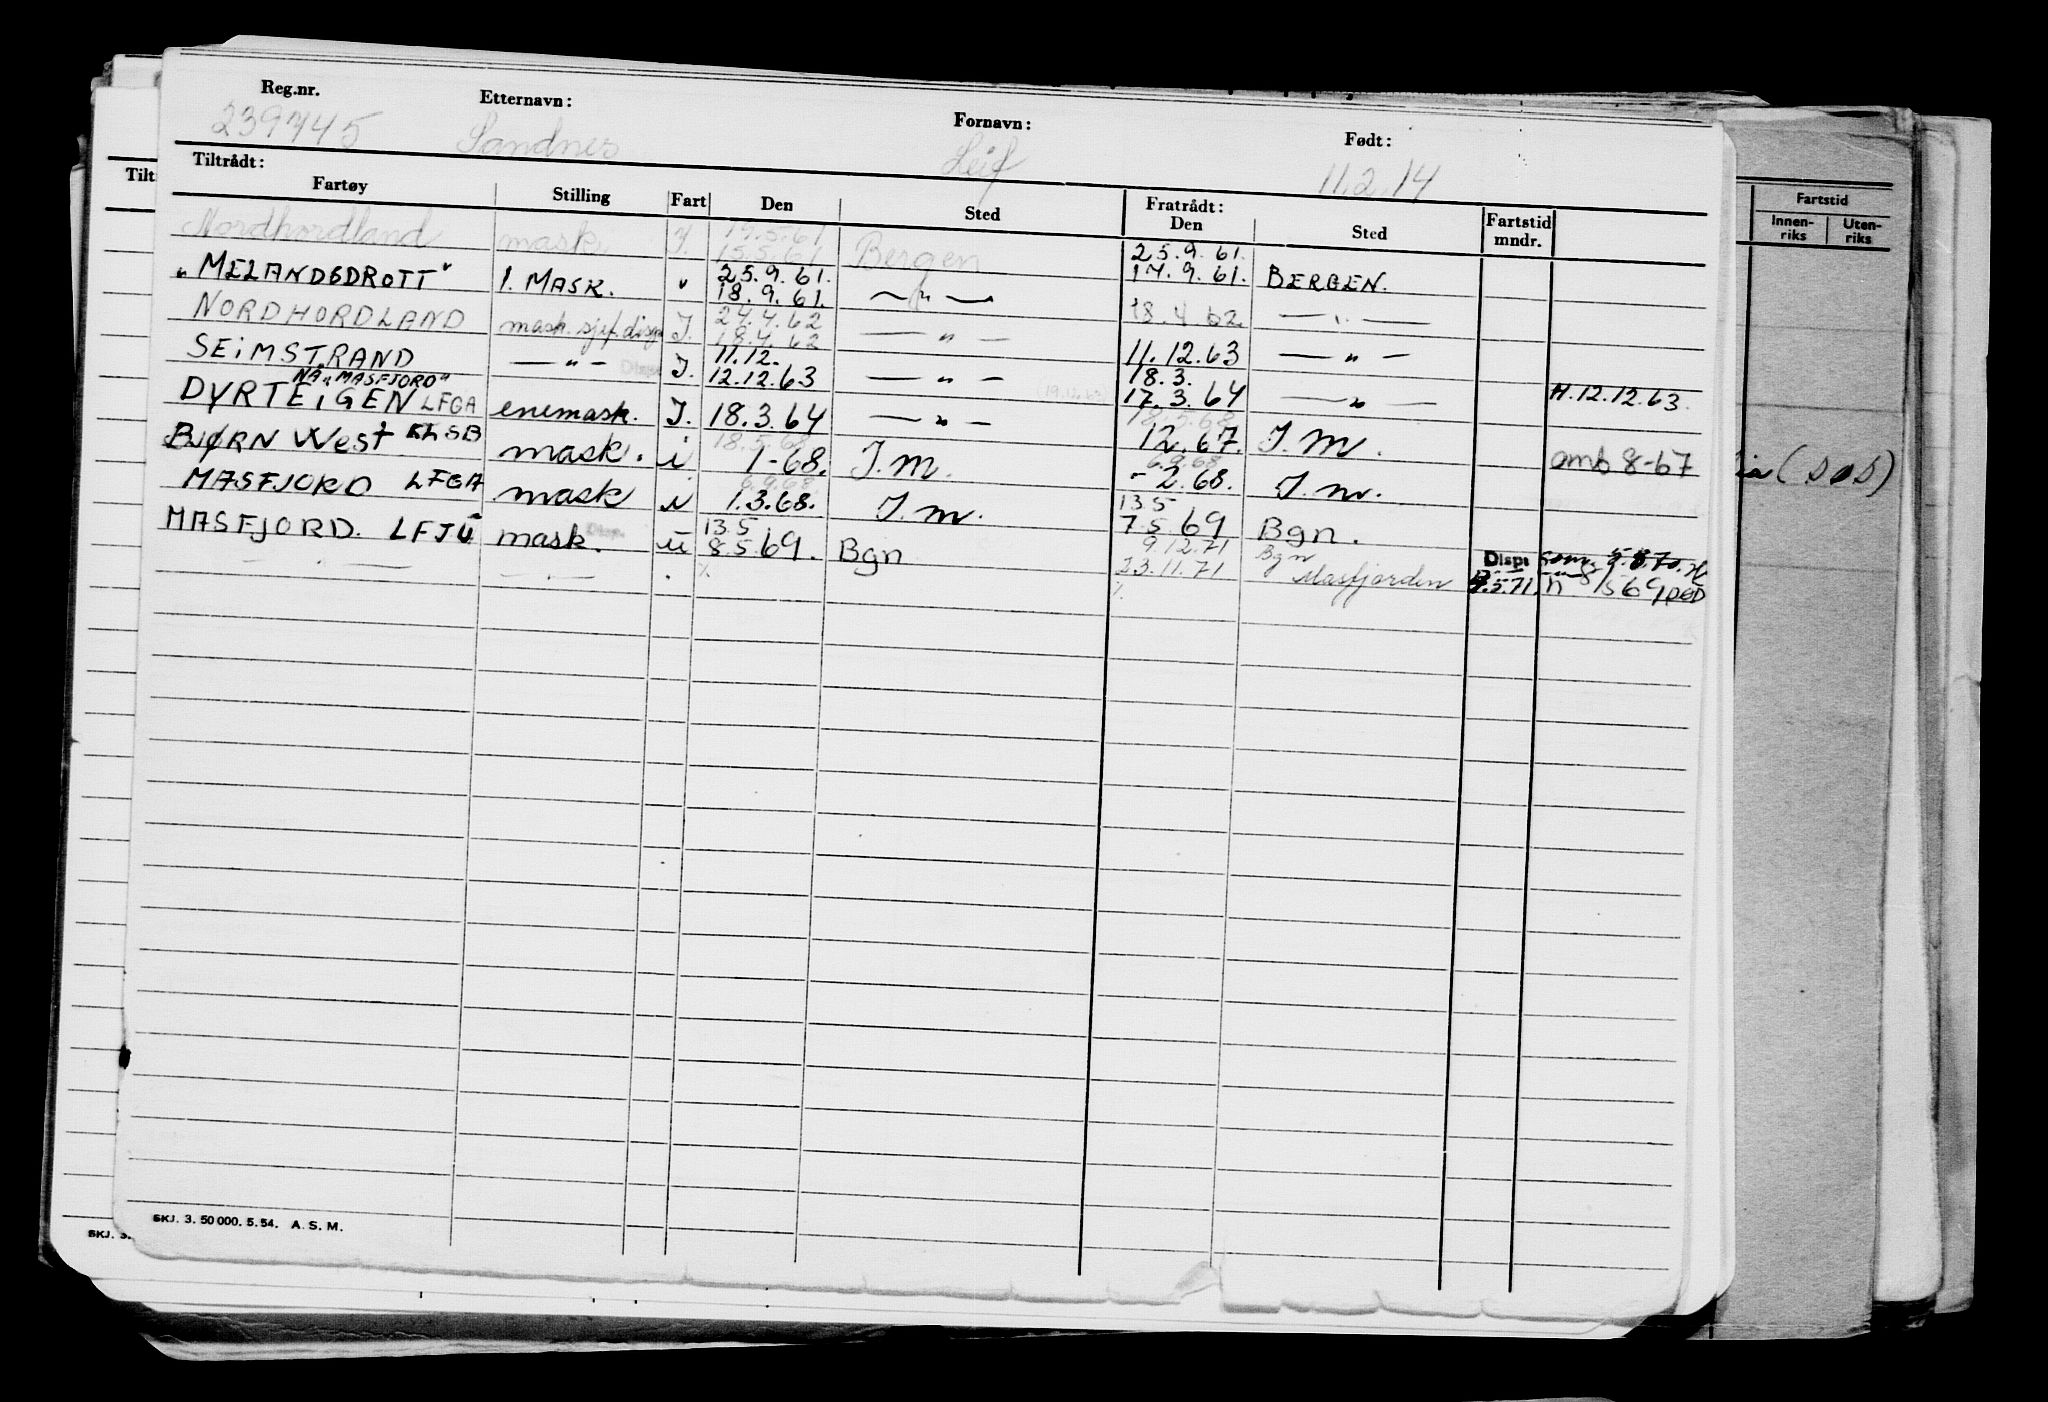 Reg.nr. Etternavn: Fornavn: Født:
239745 Sandnes Leif 11.2.14
Tiltrådt: Fratrådt:
Fartøy Stilling Fart Den Sted Den Sted Fartstid mndr.
Nordhordland mask. I. 15.5.61 Bergen 25.9.61.
17.9.61. BERGEN.
"MELANDSDROTT" 1. MASK. " 25.9.61.
18.9.61. — " — 18.4.62. — " —
NORDHORDLAND mask. sjef. disp I. 24.4.62
18.4.62 — " — 11.12.63 — " —
SEIMSTRAND — " — Disp. I. 11.12.
12.12.63 — " — (19.12.63) 18.3.
17.3.64 — " — H. 12.12.63.
NÅ "MASFJORD"
DYRTEIGEN LFGA enemask. I. 18.3.64 — " — 18.5.68
12.67. I.M. omb 8-67
BJØRN West mask. i 18.5.68
1-68. I.M. 6.9.68
-2.68. I.m.
MASFJORD LFGA mask i 6.9.68
1.3.68. I.m. 13.5
7.5.69 Bgn.
MASFJORD. LFJU mask. Disp. u 13.5
8.5.69. Bgn 9.12.71 Bgn
23.11.71 Masfjorden Disp: som. 5.8.70.
— " — — " — . ٪ ٪
SKJ. 3. 50 000. 5. 54. A. S. M.
Tilt
SKJ. 3.
Fartstid
Innenriks Utenriks
(SOS)